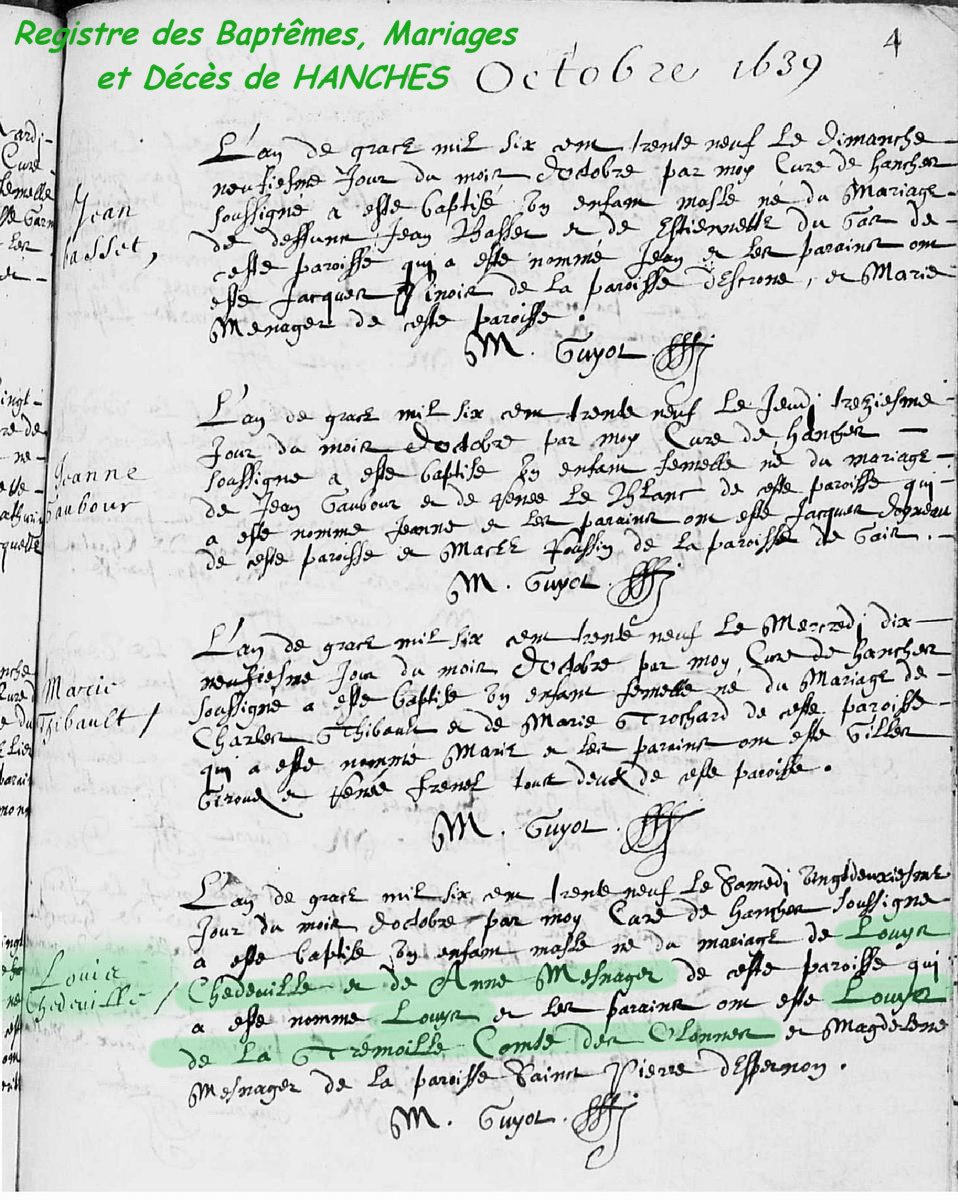 Registre des Baptêmes, Mariages
et Décès de HANCHES
Octobre 1639
4
Jean
basset,
L'an de grace mil six cem trente neuf Le Dimanche
neufiesme Jour du mois doctobre par moy Cure de hanches
soussigne a este baptisé un enfam masle né du Mariage
de deffunct Jean Basset et de Estiennette du Gas de
ceste paroisse qui a este nommé Jean et les parains om
este Jacques de La paroisse dEscrone, et Marie
Menager de ceste paroisse.
M. Guyot
Jeanne
Gaubour
L'an de grace mil six cem trente neuf Le Jeudi treziesme
Jour du mois doctobre par moy Cure de hanches
soussigne a este baptise un enfam femelle né du mariage
de Jean Gaubour et de Renee Le Blanc de ceste paroisse qui
a este nomme Jeanne et les parains om este Jacques
de ceste paroisse et Macee Poussin de La paroisse de Gas.
M. Guyot
Marie
Thibault /
L'an de grace mil six cem trente neuf Le Mercredi dix
neufiesme Jour du mois doctobre par moy Cure de hanches
soussigne a este baptise un enfam femelle né du Mariage de
Charles Thibault et de Marie Trochard de ceste paroisse
qui a este nommé Marie et les parains om este Gilles
Giroux et Renée tous deux de ceste paroisse.
M. Guyot
Louis
Chedeville /
L'an de grace mil six cem trente neuf Le Samedi vingtdeuxiesme
Jour du mois doctobre par moy Cure de hanches soussigne
a este baptise un enfam masle ne du mariage de Louys
Chedeville et de Anne Mesnager de ceste paroisse qui
a este nomme Louys et les parains om este Louys
de La Tremoille Comte des Olonnes et Magdelene
Mesnager de La paroisse Sainct Pierre dEspernon.
M. Guyot